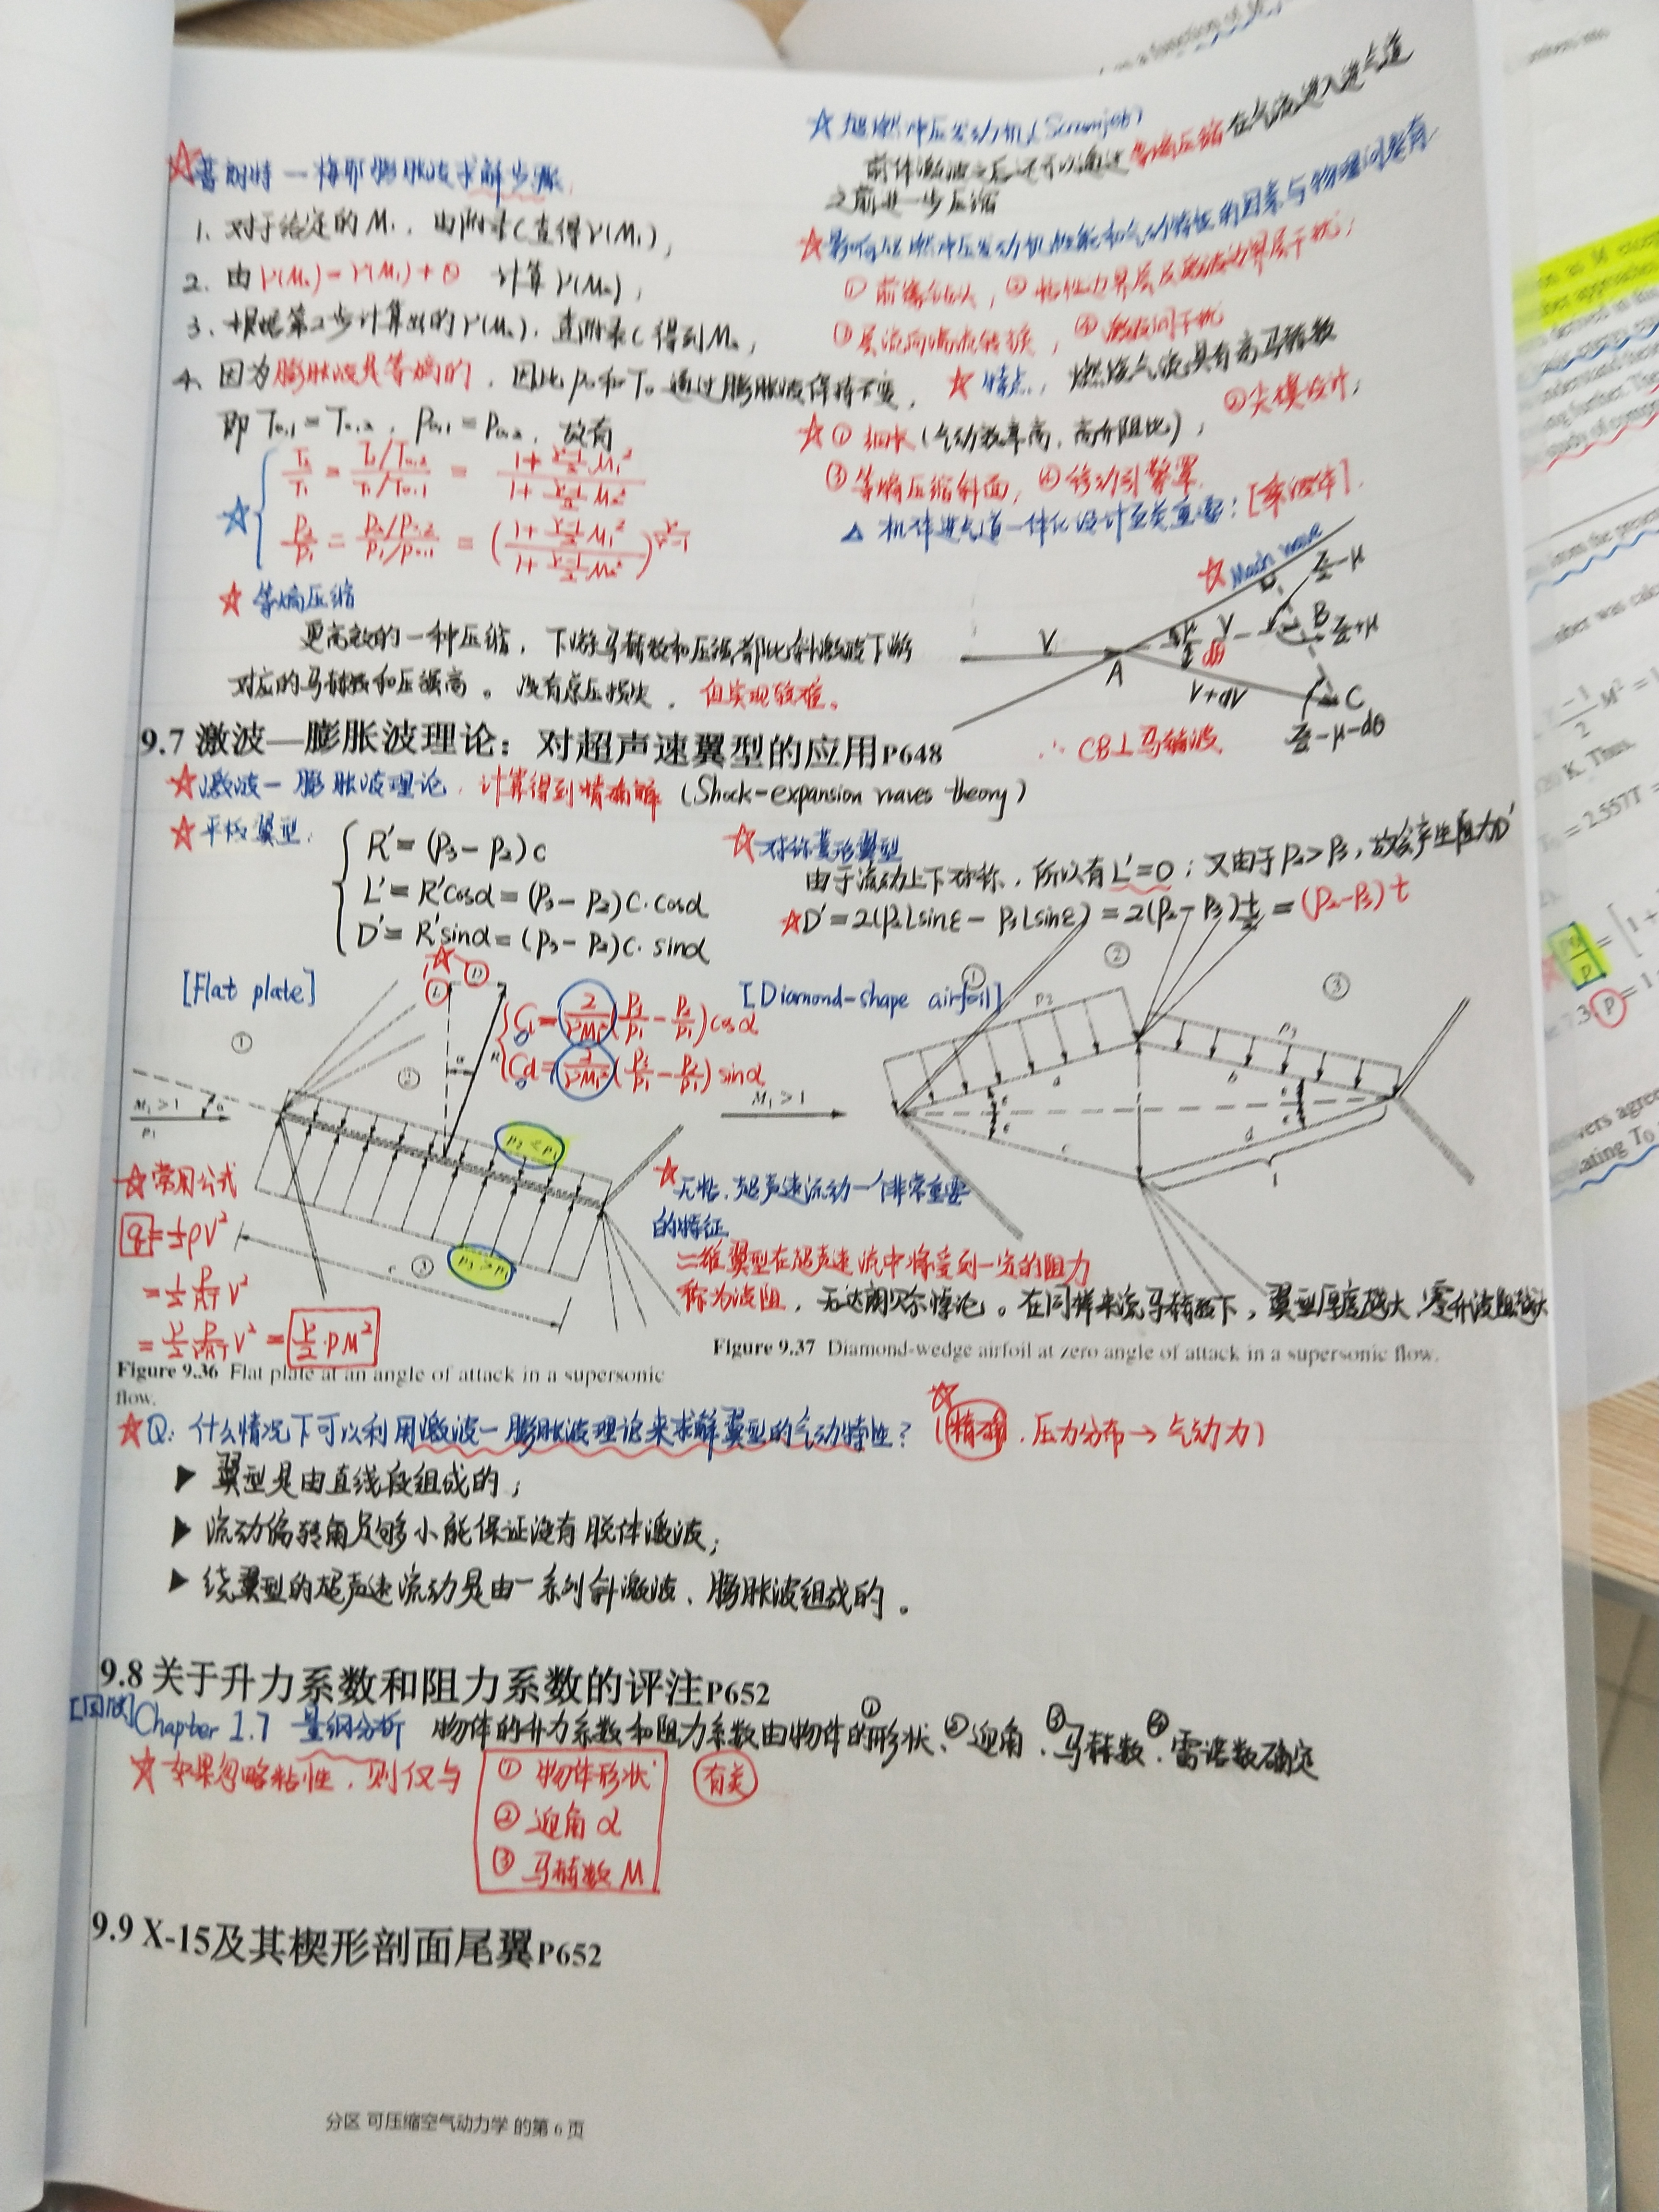 ☆普朗特—梅耶膨胀波求解步骤
1. 对于给定的M₁,由附录C查得ν(M₁);
2. 由 ν(M₂)=ν(M₁)+θ 计算ν(M₂);
3. 根据第2步计算出的ν(M₂),查附录C得到M₂;
4. 因为膨胀波是等熵的,因此p₀和T₀通过膨胀波保持不变,
即 T₀,₁=T₀,₂, p₀,₁=p₀,₂, 故有
T₂/T₁ = (T₂/T₀,₂)/(T₁/T₀,₁) = (1+(γ-1)/2 M₁²)/(1+(γ-1)/2 M₂²)
☆
p₂/p₁ = (p₂/p₀,₂)/(p₁/p₀,₁) = ((1+(γ-1)/2 M₁²)/(1+(γ-1)/2 M₂²))^(γ/(γ-1))
☆ 等熵压缩
更高效的一种压缩,下游马赫数和压强都比斜激波下游
对应的马赫数和压强高。没有总压损失,但实现较难。
☆ 超燃冲压发动机(Scramjet)
前体激波之后还可以通过等熵压缩在气流进入进气道
之前进一步压缩
☆影响超燃冲压发动机性能和气动特性的因素与物理问题有
① 前缘钝头,② 粘性边界层及激波边界层干扰;
③ 层流向湍流转捩,④ 激波间干扰
☆ 特点: 燃烧气流具有高马赫数
☆ ① 细长(气动效率高,高升阻比); ②尖楔设计;
③ 等熵压缩斜面, ④ 移动引擎罩.
△ 机体进气道一体化设计至关重要:[乘波体].
☆ Mach wave
π/2-μ
V
A
μ
dθ
V
B
π/2+μ
V+dV
C
π/2-μ-dθ
∴ CB⊥马赫波
9.7 激波—膨胀波理论:对超声速翼型的应用P648
☆激波—膨胀波理论,计算得到精确解 (Shock-expansion waves theory)
☆平板翼型:
R′=(P₃-P₂)c
L′=R′cosα=(P₃-P₂)c·cosα
D′=R′sinα=(P₃-P₂)c·sinα
☆对称菱形翼型
由于流动上下对称,所以有L′=0;又由于P₂>P₃,故会产生阻力D′
☆D′=2(P₂Lsinε-P₃Lsinε)=2(P₂-P₃)t/2=(P₂-P₃)t
[Flat plate]
☆
L
D
Cl=2/(γM₁²)(P₃/P₁-P₂/P₁)cosα
Cd=2/(γM₁²)(P₃/P₁-P₂/P₁)sinα
①
②
α
R
M₁>1
p₁
α
p₂<p₁
p₃>p₁
③
c
[Diamond-shape airfoil]
①
②
③
p₂
p₃
M₁>1
a
b
c
d
ε
ε
ε
ε
t
l
☆常用公式
q=½ρV²
=½ P/RT V²
=γ/2 P/γRT V²=γ/2·PM²
☆无粘,超声速流动一个非常重要
的特征
二维翼型在超声速流中将受到一定的阻力
称为波阻,无达朗贝尔悖论。在同样来流马赫数下,翼型厚度越大,零升波阻越大
Figure 9.36 Flat plate at an angle of attack in a supersonic
flow.
Figure 9.37 Diamond-wedge airfoil at zero angle of attack in a supersonic flow.
☆Q: 什么情况下可以利用激波—膨胀波理论来求解翼型的气动特性? (精确,压力分布→气动力)
☆
▶ 翼型是由直线段组成的;
▶ 流动偏转角足够小能保证没有脱体激波;
▶ 绕翼型的超声速流动是由一系列斜激波、膨胀波组成的。
9.8 关于升力系数和阻力系数的评注P652
[回顾]Chapter 1.7 量纲分析 物体的升力系数和阻力系数由物体的①形状、②迎角、③马赫数、④雷诺数确定
☆ 如果忽略粘性,则仅与 ① 物体形状 有关
② 迎角 α
③ 马赫数 M
9.9 X-15及其楔形剖面尾翼P652
分区 可压缩空气动力学 的第 6 页